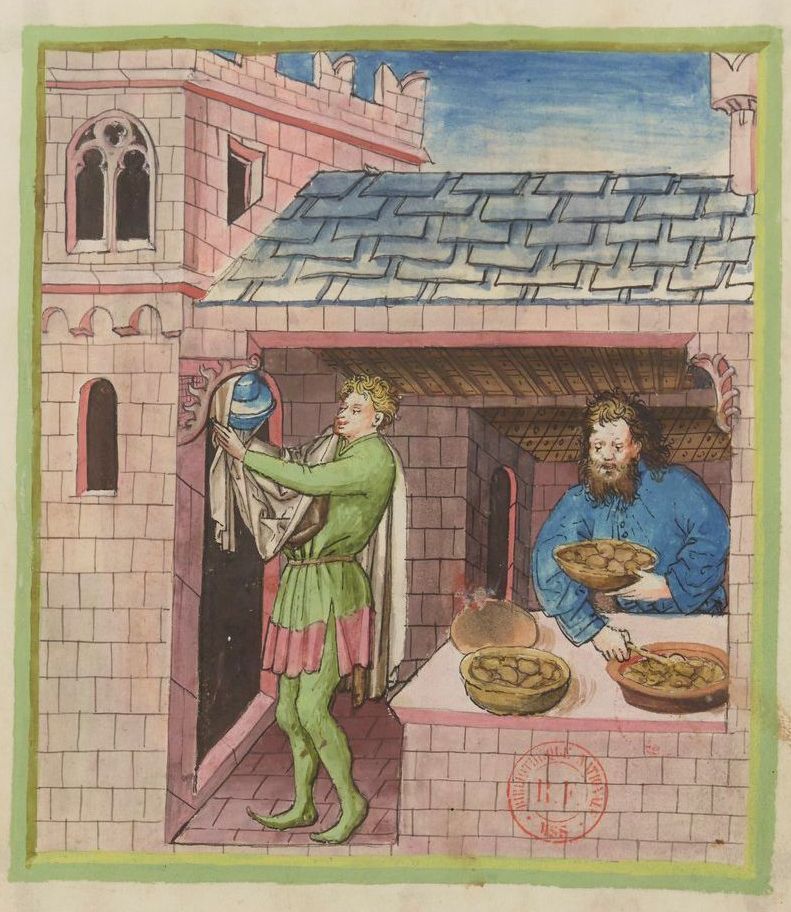 BIBLIOTHÈQUE NATIONALE
R.F.
MSS